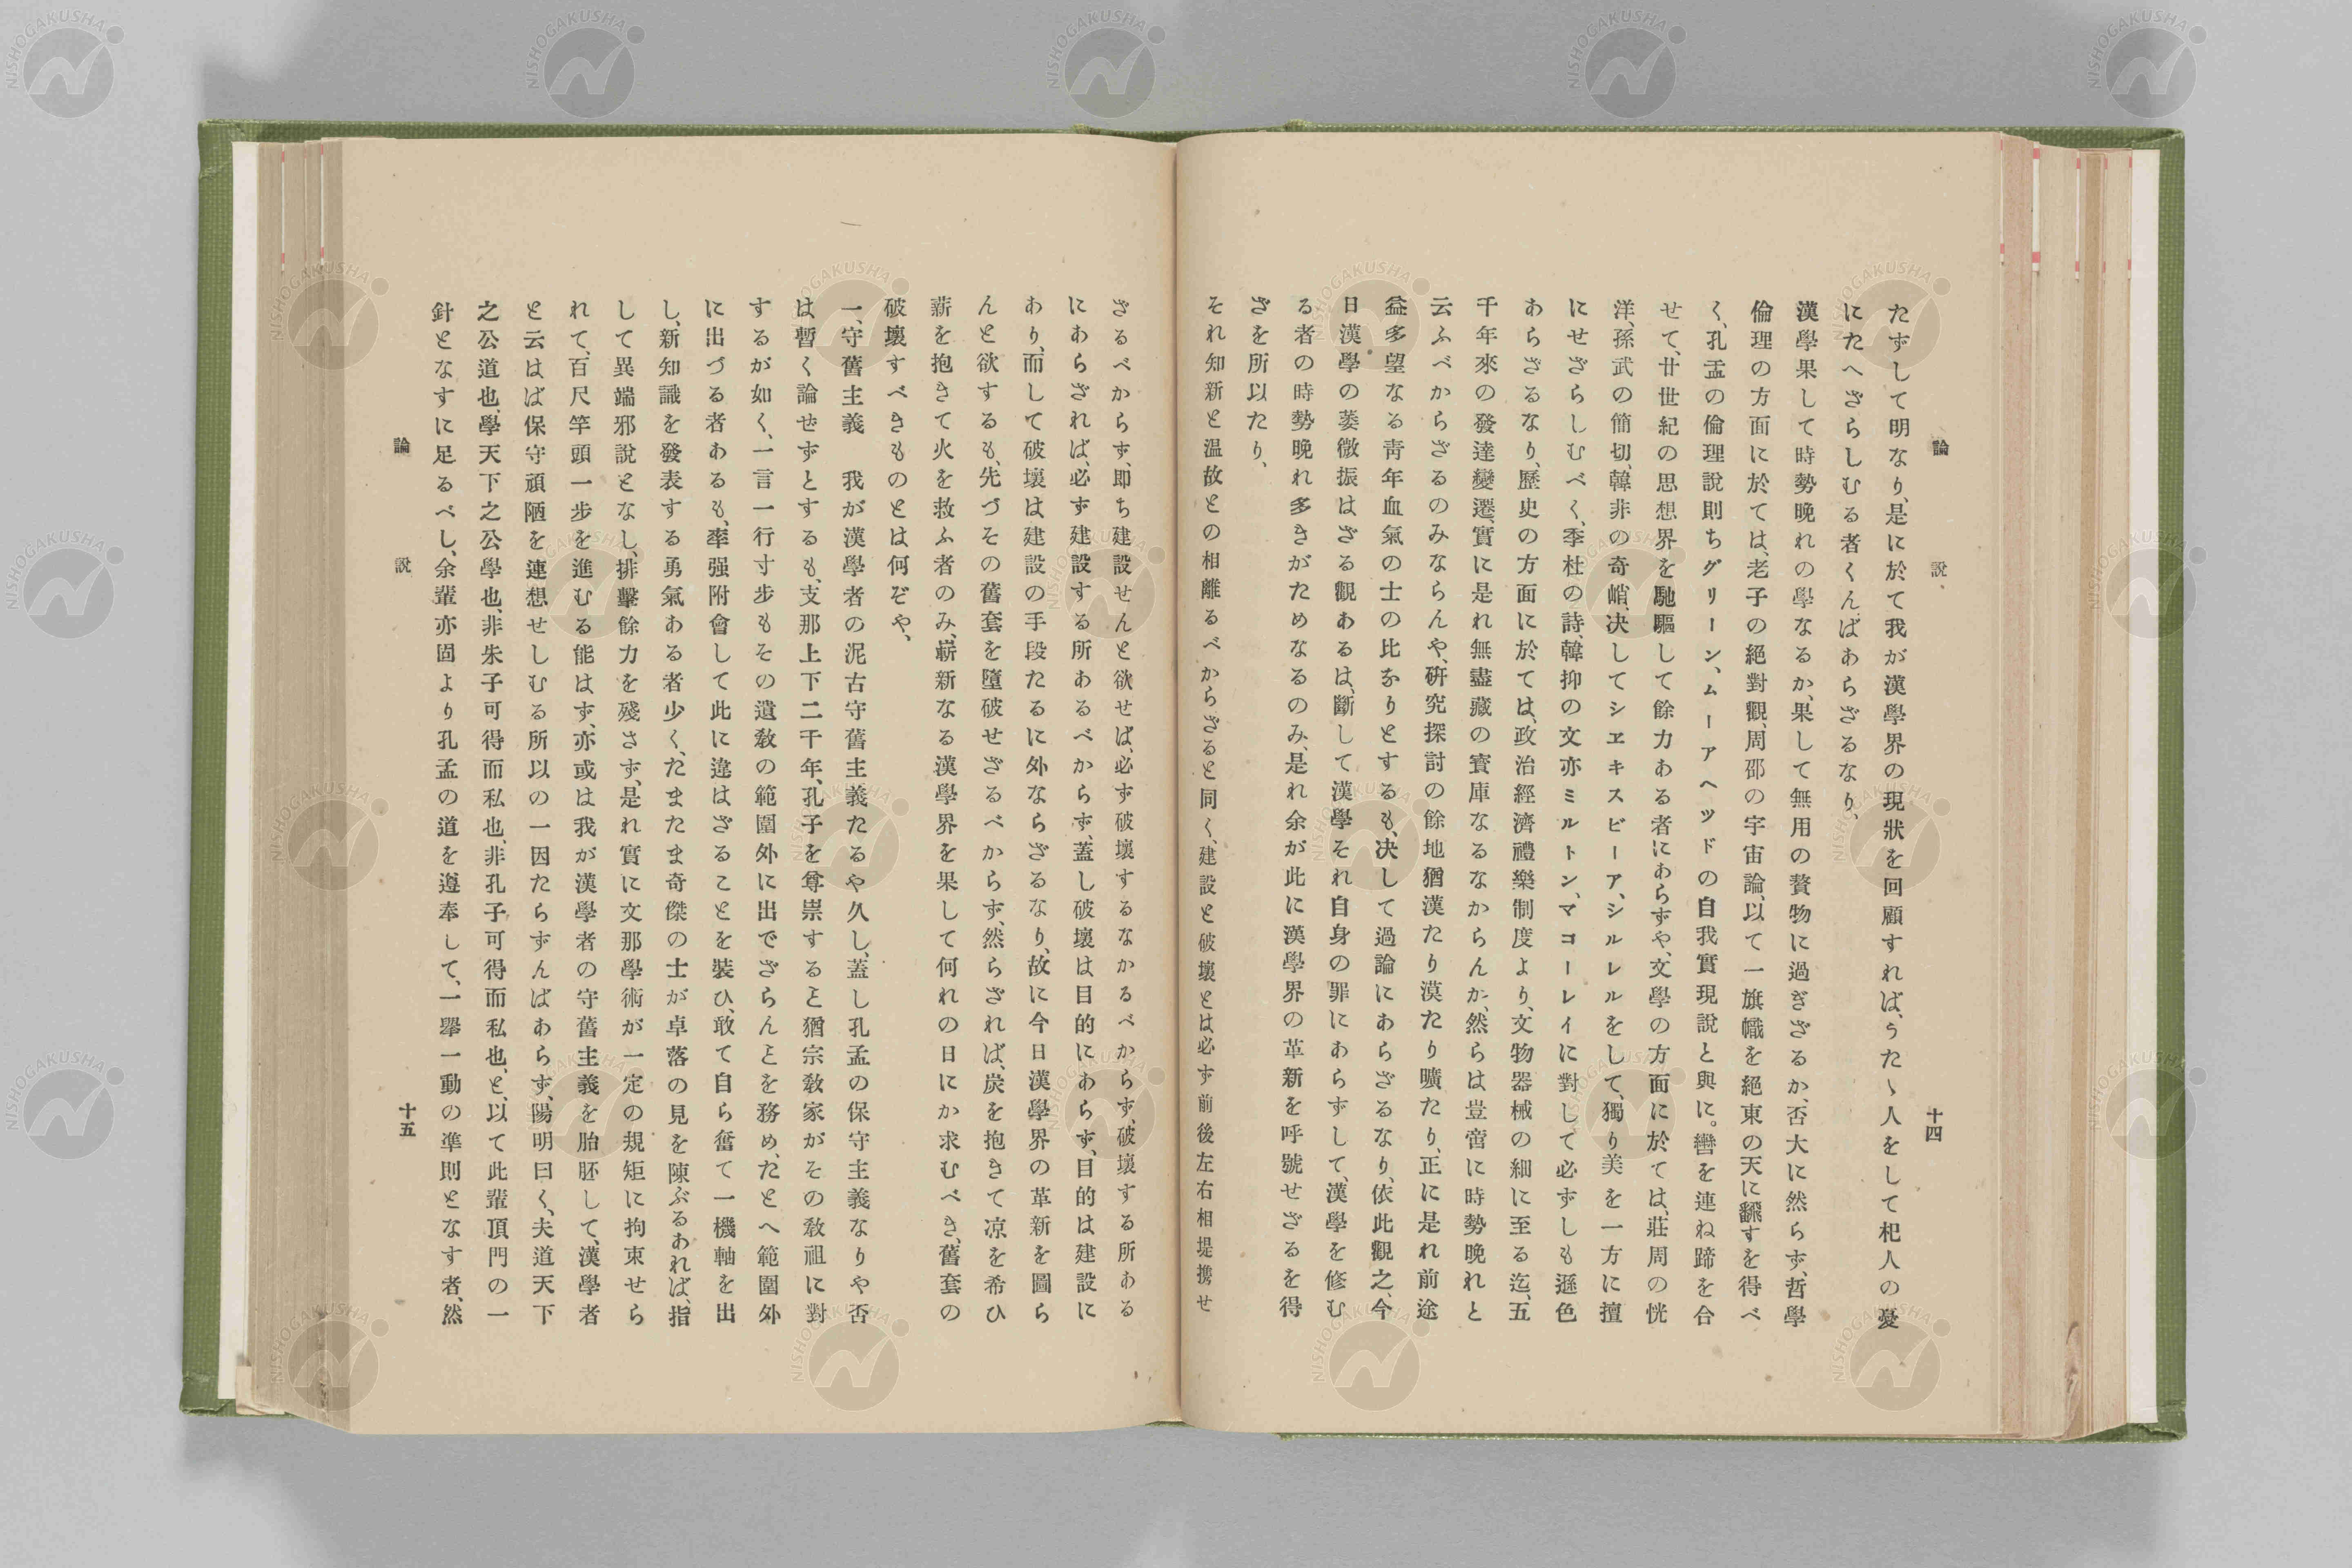 論說、
十四
たずして明なり、是に於て我が漢學界の現狀を回顧すれば、うたヽ人をして杞人の憂
にたへざらしむる者くんばあらざるなり、
漢學果して時勢晩れの學なるか、果して無用の贅物に過ぎざるか、否大に然らず、哲學
倫理の方面に於ては、老子の絕對觀、周邵の宇宙論、以て一旗幟を絕東の天に飜すを得べ
く、孔孟の倫理說則ちグリーン、ムーアヘツドの自我實現說と與に。轡を連ね蹄を合
せて、廿世紀の思想界を馳驅して餘力ある者にあらずや、文學の方面に於ては、莊周の恍
洋、孫武の簡切、韓非の奇峭、决してシヱキスピーア、シルレルをして、獨り美を一方に擅
にせざらしむべく、季杜の詩、韓抑の文亦ミルトン、マコーレイに對して必ずしも遜色
あらざるなり、歷史の方面に於ては、政治經濟禮樂制度より、文物器械の細に至る迄、五
千年來の發達變遷、實に是れ無盡藏の寳庫なるなからんか、然らは豈啻に時勢晩れと
云ふべからざるのみならんや、硏究探討の餘地猶漠たり漠たり曠たり、正に是れ前途
益多望なる靑年血氣の士の比なりとするも、决して過論にあらざるなり、依此觀之、今
日漢學の萎微振はざる觀あるは、斷して漢學それ自身の罪にあらずして、漢學を修む
る者の時勢晩れ多きがためなるのみ、是れ余が此に漢學界の革新を呼號せざるを得
ざを所以たり、
それ知新と温故との相離るべからざると同く、建設と破壞とは必ず前後左右相堤携せ
ざるべからず、即ち建設せんと欲せば、必ず破壞するなかるべからず、破壞する所ある
にあらざれば、必ず建設する所あるべからず、蓋し破壞は目的にあらず、目的は建設に
あり、而して破壞は建設の手段たるに外ならざるなり、故に今日漢學界の革新を圖ら
んと欲するも、先づその舊套を墮破せざるべからず、然らざれば、炭を抱きて凉を希ひ
薪を抱きて火を救ふ者のみ、嶄新なる漢學界を果して何れの日にか求むべき、舊套の
破壞すべきものとは何ぞや、
一、守舊主義　我が漢學者の泥古守舊主義たるや久し、蓋し孔孟の保守主義なりや否
は暫く論せずとするも、支那上下二千年、孔子を尊崇すると猶宗敎家がその敎祖に對
するが如く、一言一行寸步もその遺敎の範圍外に出でざらんとを務め、たとへ範圍外
に出づる者あるも、率强附會して此に違はざることを裝ひ、敢て自ら奮て一機軸を出
し、新知識を發表する勇氣ある者少く、たまたま奇傑の士が卓落の見を陳ぶるあれば、指
して異端邪說となし、排擊餘力を殘さず、是れ實に文那學術が一定の規矩に拘束せら
れて、百尺竿頭一步を進むる能はず、亦或は我が漢學者の守舊主義を胎胚して、漢學者
と云はば保守頑陋を連想せしむる所以の一因たらずんばあらず、陽明曰く、夫道天下
之公道也、學天下之公學也、非朱子可得而私也、非孔子可得而私也、と、以て此輩頂門の一
針となすに足るべし、余輩亦固より孔孟の道を遵奉して、一擧一動の準則となす者、然
論說
十五